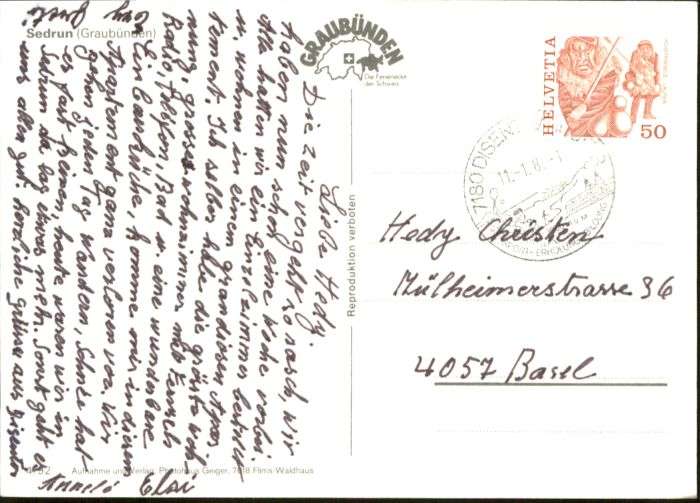 Sedrun (Graubünden)
GRAUBÜNDEN
Die Ferienecke
der Schweiz
HELVETIA
50
7180 DISENT
11.-1.8
Liebe Hedy.
Die Zeit vergeht so rasch, wir
haben nun schon eine Woche vorbei.
Alle hatten wir ein Einzelzimmer
u. wohnen in einem grandiosen Appar
tement. Ich selber habe die grösste Woh
nung, grosses Wohnzimmer mit Fernseh
Radio, Telefon, Bad u. eine wunderbare
Einbauküche, komme mir in diesem
Apartement ganz verloren vor. Wir
gehen jeden Tag wandern, Schnee hat
es fast keinen, heute waren wir in
Sedrun da lag etwas mehr. Sonst geht es
uns allen gut. Herzliche Grüsse aus Disentis
Elsi
Reproduktion verboten
Hedy Christen
Mülheimerstrasse 36
4057 Basel
Aufnahme und Verlag, Photohaus Geiger, 7018 Flims-Waldhaus